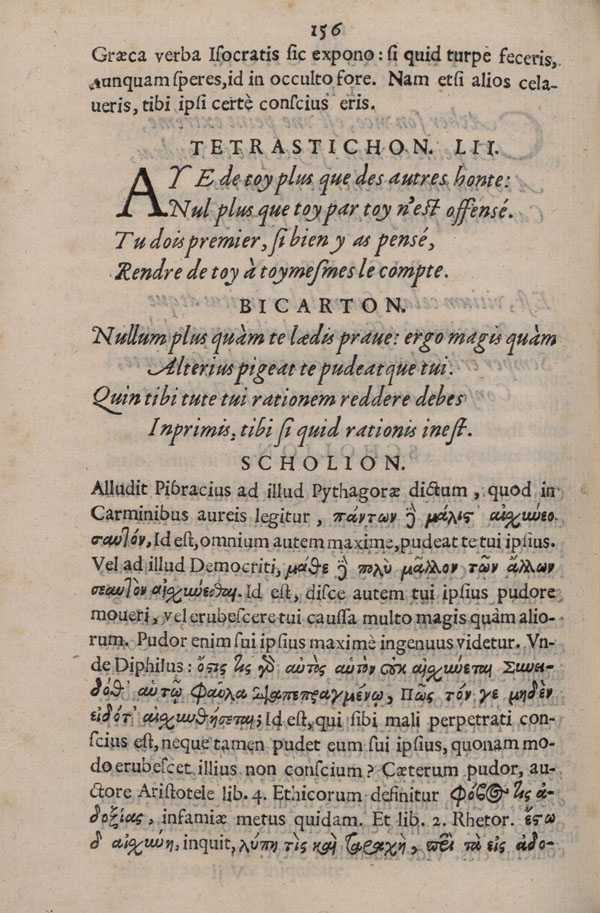 156
Græca verba Iſocratis ſic expono: ſi quid turpe feceris,
nunquam ſperes, id in occulto fore. Nam etſi alios cela-
ueris, tibi ipſi certè conſcius eris.
TETRASTICHON. LII.
AYE de toy plus que des autres honte:
Nul plus que toy par toy n'eſt offensé.
Tu dois premier, ſi bien y as pensé,
Rendre de toy à toymeſmes le compte.
BICARTON.
Nullum plus quàm te lædis praue: ergo magis quàm
Alterius pigeat te pudeatque tui.
Quin tibi tute tui rationem reddere debes
Inprimis, tibi ſi quid rationis ineſt.
SCHOLION.
Alludit Pibracius ad illud Pythagoræ dictum, quod in
Carminibus aureis legitur, πάντων δὲ μάλιςʼ αἰσχύνεο
σαυτόν, Id eſt, omnium autem maxime, pudeat te tui ipſius.
Vel ad illud Democriti, μάθε δὲ πολὺ μᾶλλον τῶν ἄλλων
σεαυτὸν αἰσχύνεσθαι. Id eſt, diſce autem tui ipſius pudore
moueri, vel erubeſcere tui cauſſa multo magis quàm alio-
rum. Pudor enim ſui ipſius maximè ingenuus videtur. Vn-
de Diphilus: ὅςις τις γὸ αὐτὸς αὑτὸν οὐκ αἰσχύνεται Συνει-
δόθʼ αὑτῷ φαῦλα διαπεπραγμένῳ, Πῶς τόν γε μηδὲν
εἰδότʼ αἰσχυνθήσεται; Id eſt, qui ſibi mali perpetrati con-
ſcius eſt, neque tamen pudet eum ſui ipſius, quonam mo-
do erubeſcet illius non conſcium? Cæterum pudor, au-
ctore Ariſtotele lib. 4. Ethicorum definitur φόβος τις ἀ-
δοξίας, infamiæ metus quidam. Et lib. 2. Rhetor. ἔςω
δʼ αἰσχύνη, inquit, λύπη τὶς καὶ ταραχὴ, περὶ τὰ εἰς ἀδο-